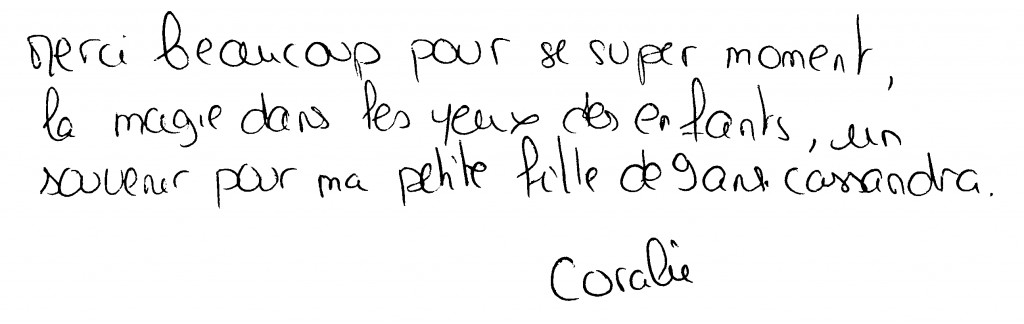 Merci beaucoup pour se super moment,
la magie dans les yeux des enfants, un
souvenir pour ma petite fille de 9 ans cassandra.
Coralie